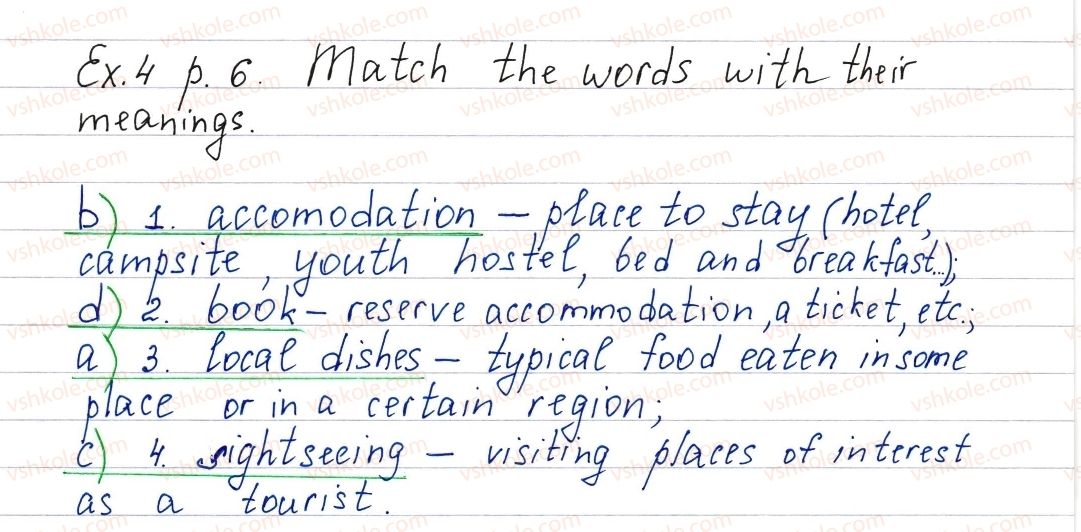 Ex.4 p. 6. Match the words with their
meanings.
b) 1. accomodation – place to stay (hotel,
campsite, youth hostel, bed and breakfast...);
d) 2. book – reserve accommodation, a ticket, etc.;
a) 3. local dishes – typical food eaten in some
place or in a certain region;
c) 4. sightseeing – visiting places of interest
as a tourist.